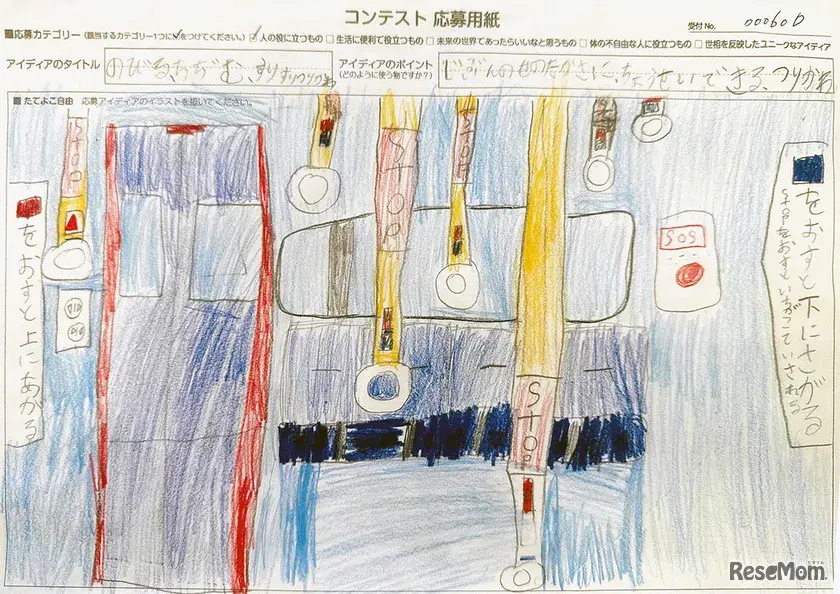 コンテスト 応募用紙
受付No. 000600
■応募カテゴリー (該当するカテゴリー1つに✓をつけてください。) ☑人の役に立つもの □生活に便利で役立つもの □未来の世界であったらいいなと思うもの □体の不自由な人に役立つもの □世相を反映したユニークなアイディア
アイディアのタイトル のびるちぢむ、すりすりつりかわ
アイディアのポイント (どのように使う物ですか?) じぶんのせのたかさに、ちょうせいできる、つりかわ
■たてよこ自由 応募アイディアのイラストを描いてください。
STOP
STOP
STOP
STOP
SOS
をおすと上にあがる
をおすと下にさがる
STOPをおすといちがこていされる
ReseMom.
リセマム